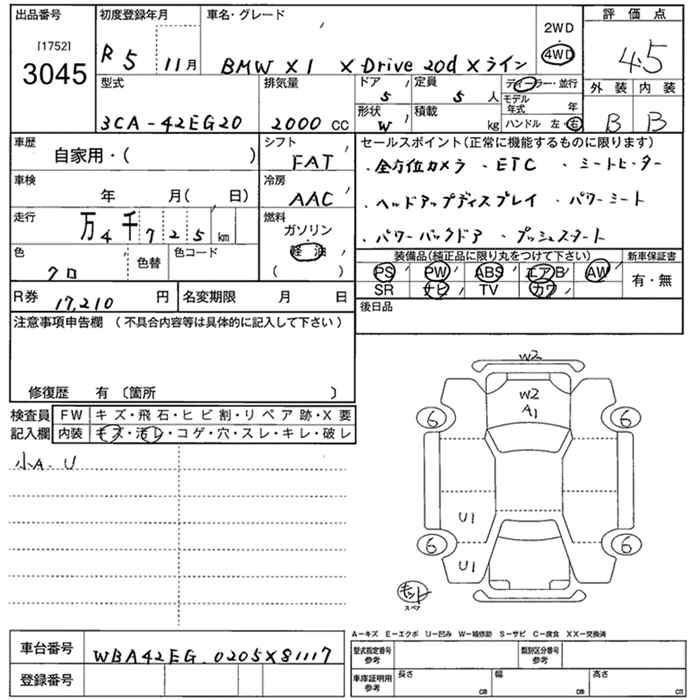 出品番号 初度登録年月 車名・グレード 2WD 評価点
[1752] R5 11月 BMW X1 xDrive 20d xライン 4WD 4.5
3045
型式 排気量 ドア 定員 ディーラー・並行 外装 内装
5 5人 モデル年式 年
3CA-42EG20 2000cc 形状 W 積載 kg ハンドル 左・右 B B
車歴 シフト セールスポイント(正常に機能するものに限ります)
自家用・( ) FAT ・全方位カメラ ・ETC ・シートヒーター
車検 冷房
年 月( 日) AAC ・ヘッドアップディスプレイ ・パワーシート
走行 燃料
万4千725km ガソリン ・パワーバックドア ・プッシュスタート
色 色替 色コード 軽油 装備品(純正品に限り丸をつけて下さい) 新車保証書
クロ ( ) PS PW ABS エアB AW 有・無
SR ナビ TV カワ
R券 17,210円 名変期限 月 日 後日品
注意事項申告欄 (不具合内容等は具体的に記入して下さい)
修復歴 有 〔箇所 〕
検査員 FW キズ・飛石・ヒビ割・リペア跡・X要
記入欄 内装 キズ・汚レ・コゲ・穴・スレ・キレ・破レ
小A.U
W2
W2
A1
6 6
U1
6 6
U1
キット
スペア
A-キズ E-エクボ U-凹み W-補修跡 S-サビ C-腐食 XX-交換済
車台番号 WBA42EG.0205X81117 型式指定番号 参考 類別区分番号 参考
登録番号 車庫証明用 参考 長さ cm 幅 cm 高さ cm